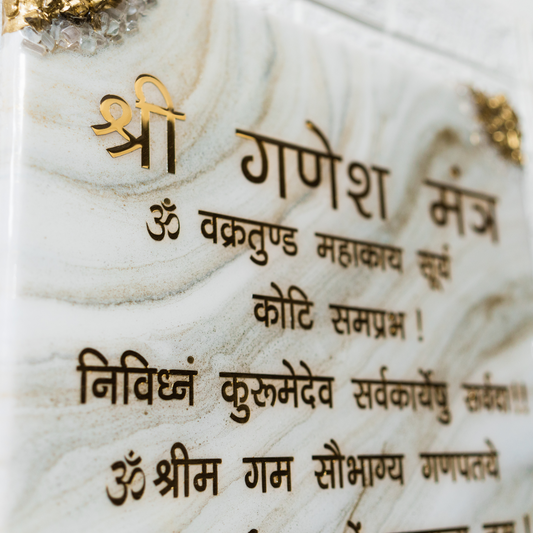 श्री गणेश मंत्र
ॐ वक्रतुण्ड महाकाय सूर्य
कोटि समप्रभ !
निविध्नं कुरूमेदेव सर्वकार्येषु
ॐ श्रीम गम सौभाग्य गणपतये